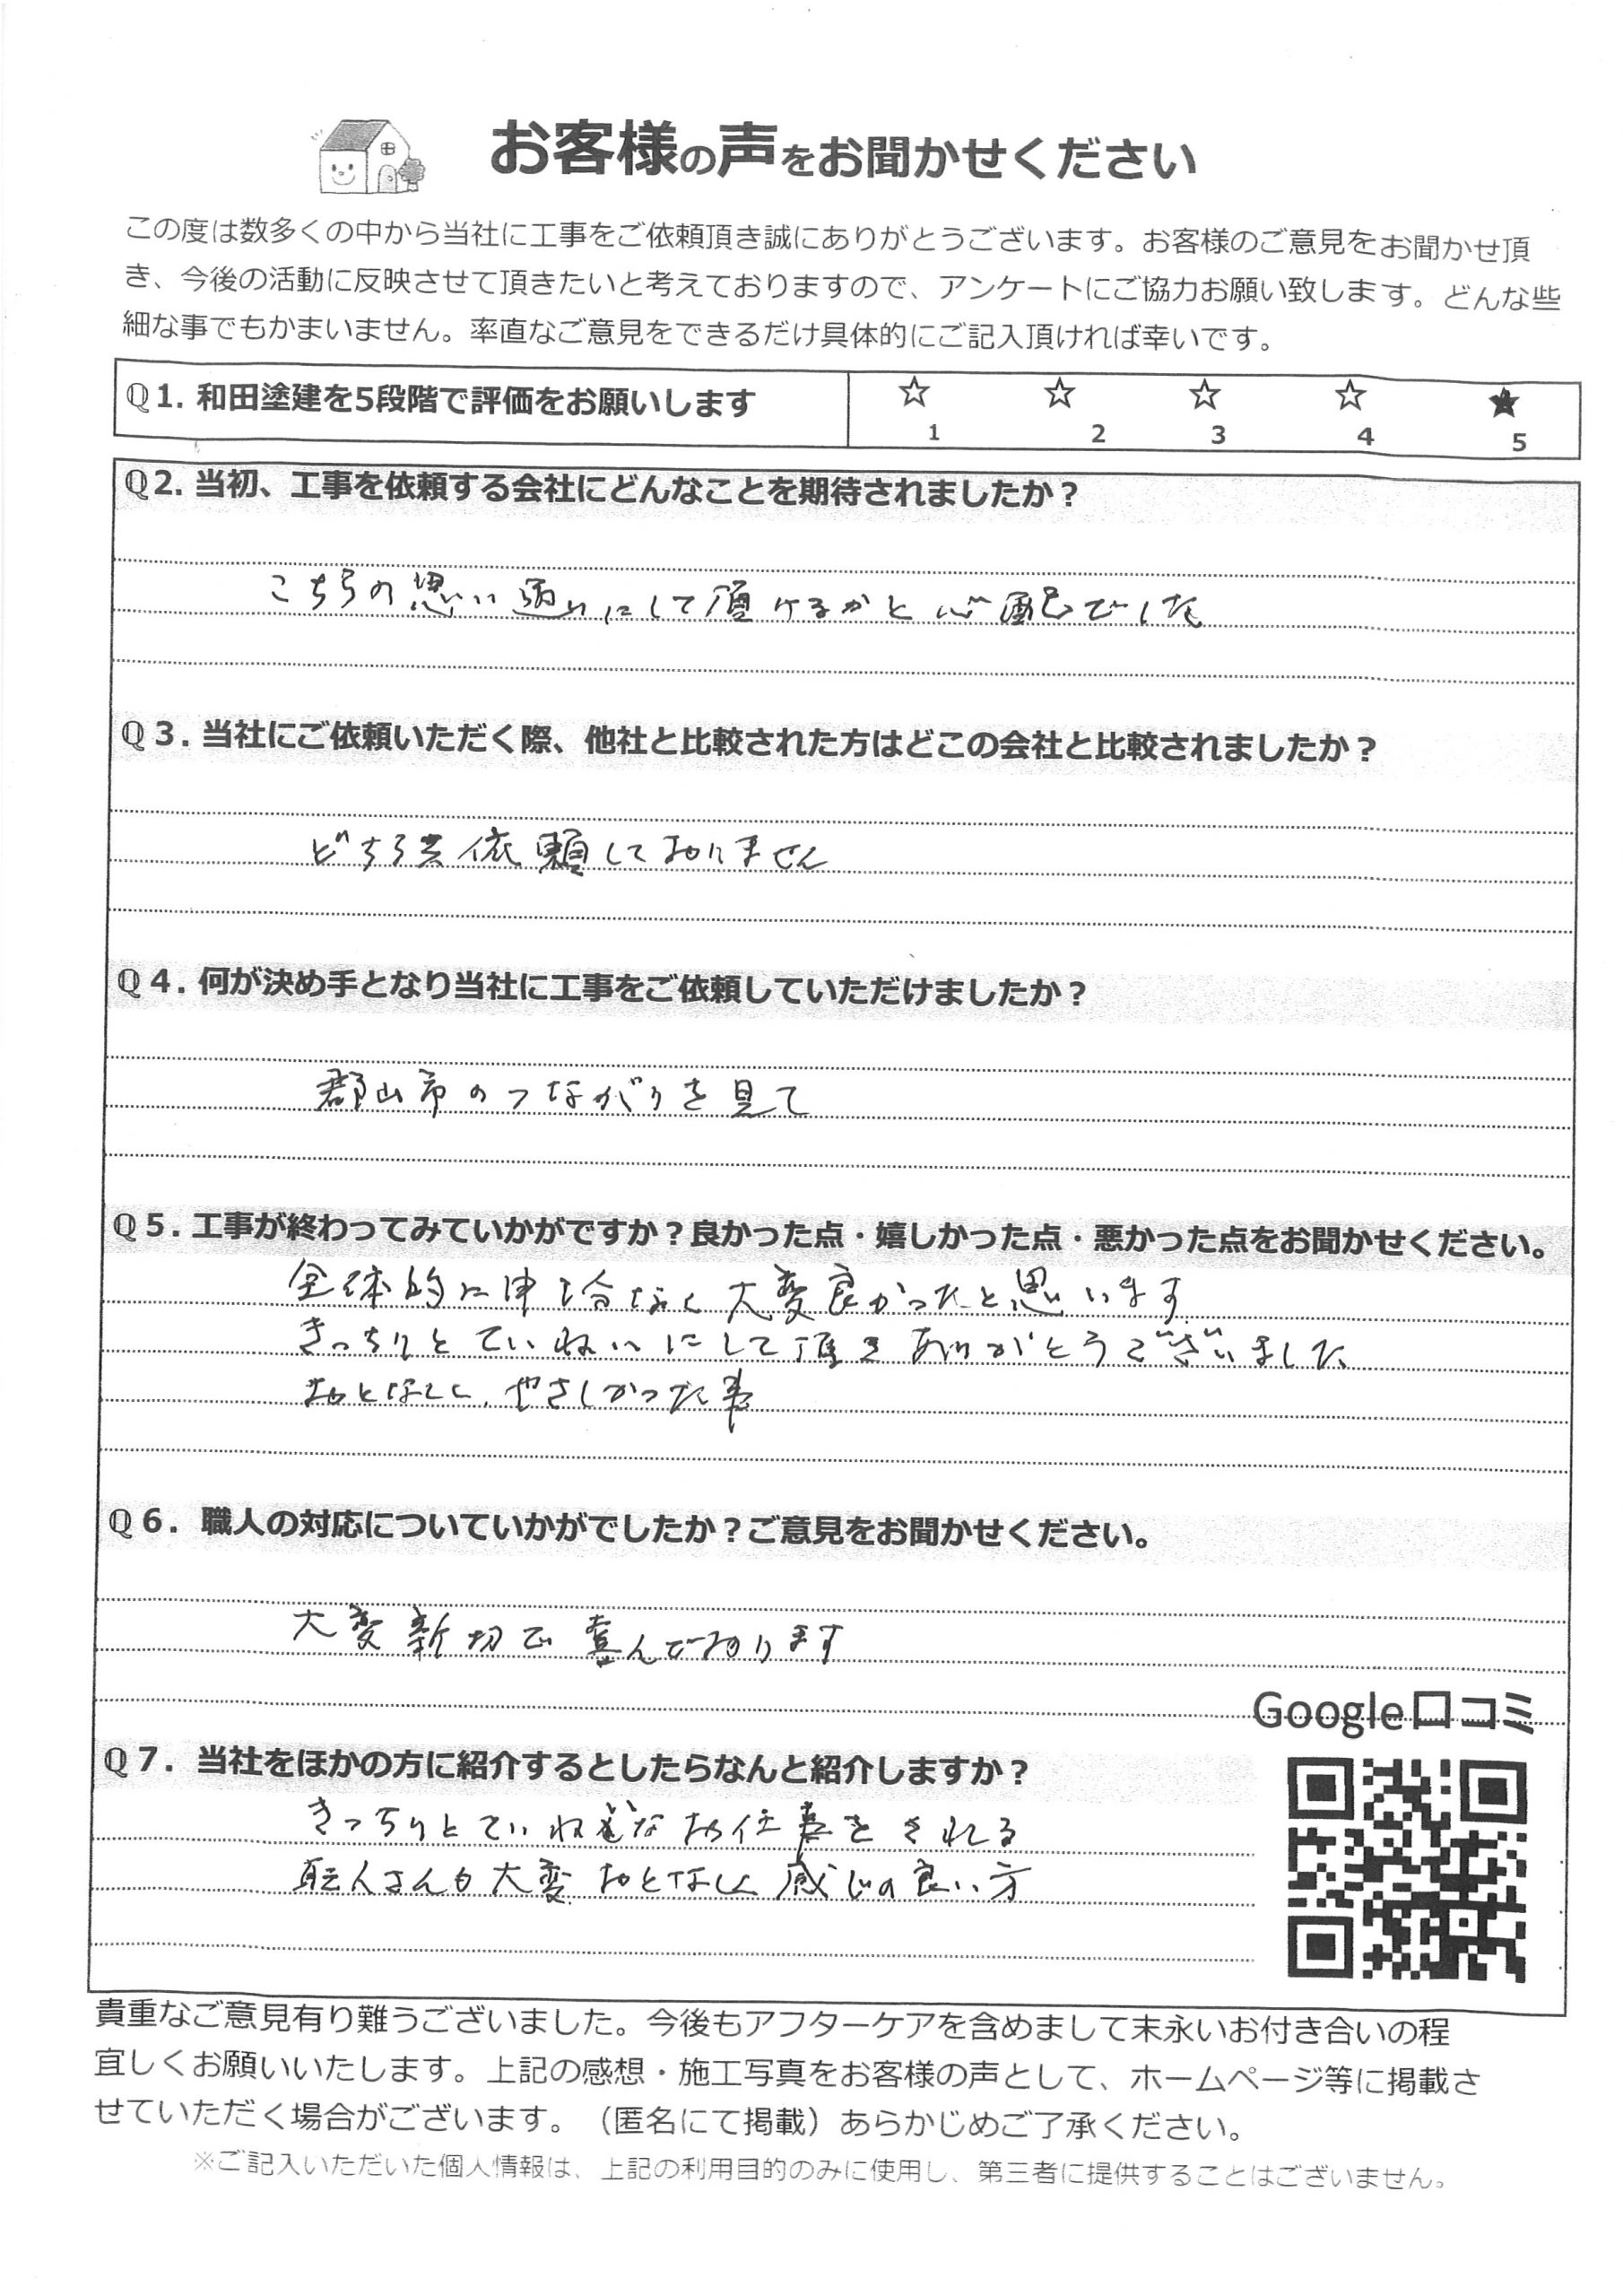 お客様の声をお聞かせください
この度は数多くの中から当社に工事をご依頼頂き誠にありがとうございます。お客様のご意見をお聞かせ頂
き、今後の活動に反映させて頂きたいと考えておりますので、アンケートにご協力お願い致します。どんな些
細な事でもかまいません。率直なご意見をできるだけ具体的にご記入頂ければ幸いです。
Q1. 和田塗建を5段階で評価をお願いします
☆ ☆ ☆ ☆ ★
1 2 3 4 5
Q2. 当初、工事を依頼する会社にどんなことを期待されましたか？
こちらの思い通りにして頂けるかと心配でした
Q3. 当社にご依頼いただく際、他社と比較された方はどこの会社と比較されましたか？
どちら共依頼しておりません
Q4. 何が決め手となり当社に工事をご依頼していただけましたか？
郡山市のつながりを見て
Q5. 工事が終わってみていかがですか？良かった点・嬉しかった点・悪かった点をお聞かせください。
全体的に申し分なく大変良かったと思います
きっちりとていねいにして頂きありがとうございました
おとなしく、やさしかった事
Q6. 職人の対応についていかがでしたか？ご意見をお聞かせください。
大変新切で喜んでおります
Google口コミ
Q7. 当社をほかの方に紹介するとしたらなんと紹介しますか？
きっちりとていねいなお仕事をされる
職人さんも大変おとなしく感じの良い方
貴重なご意見有り難うございました。今後もアフターケアを含めまして末永いお付き合いの程
宜しくお願いいたします。上記の感想・施工写真をお客様の声として、ホームページ等に掲載さ
せていただく場合がございます。（匿名にて掲載）あらかじめご了承ください。
※ご記入いただいた個人情報は、上記の利用目的のみに使用し、第三者に提供することはございません。